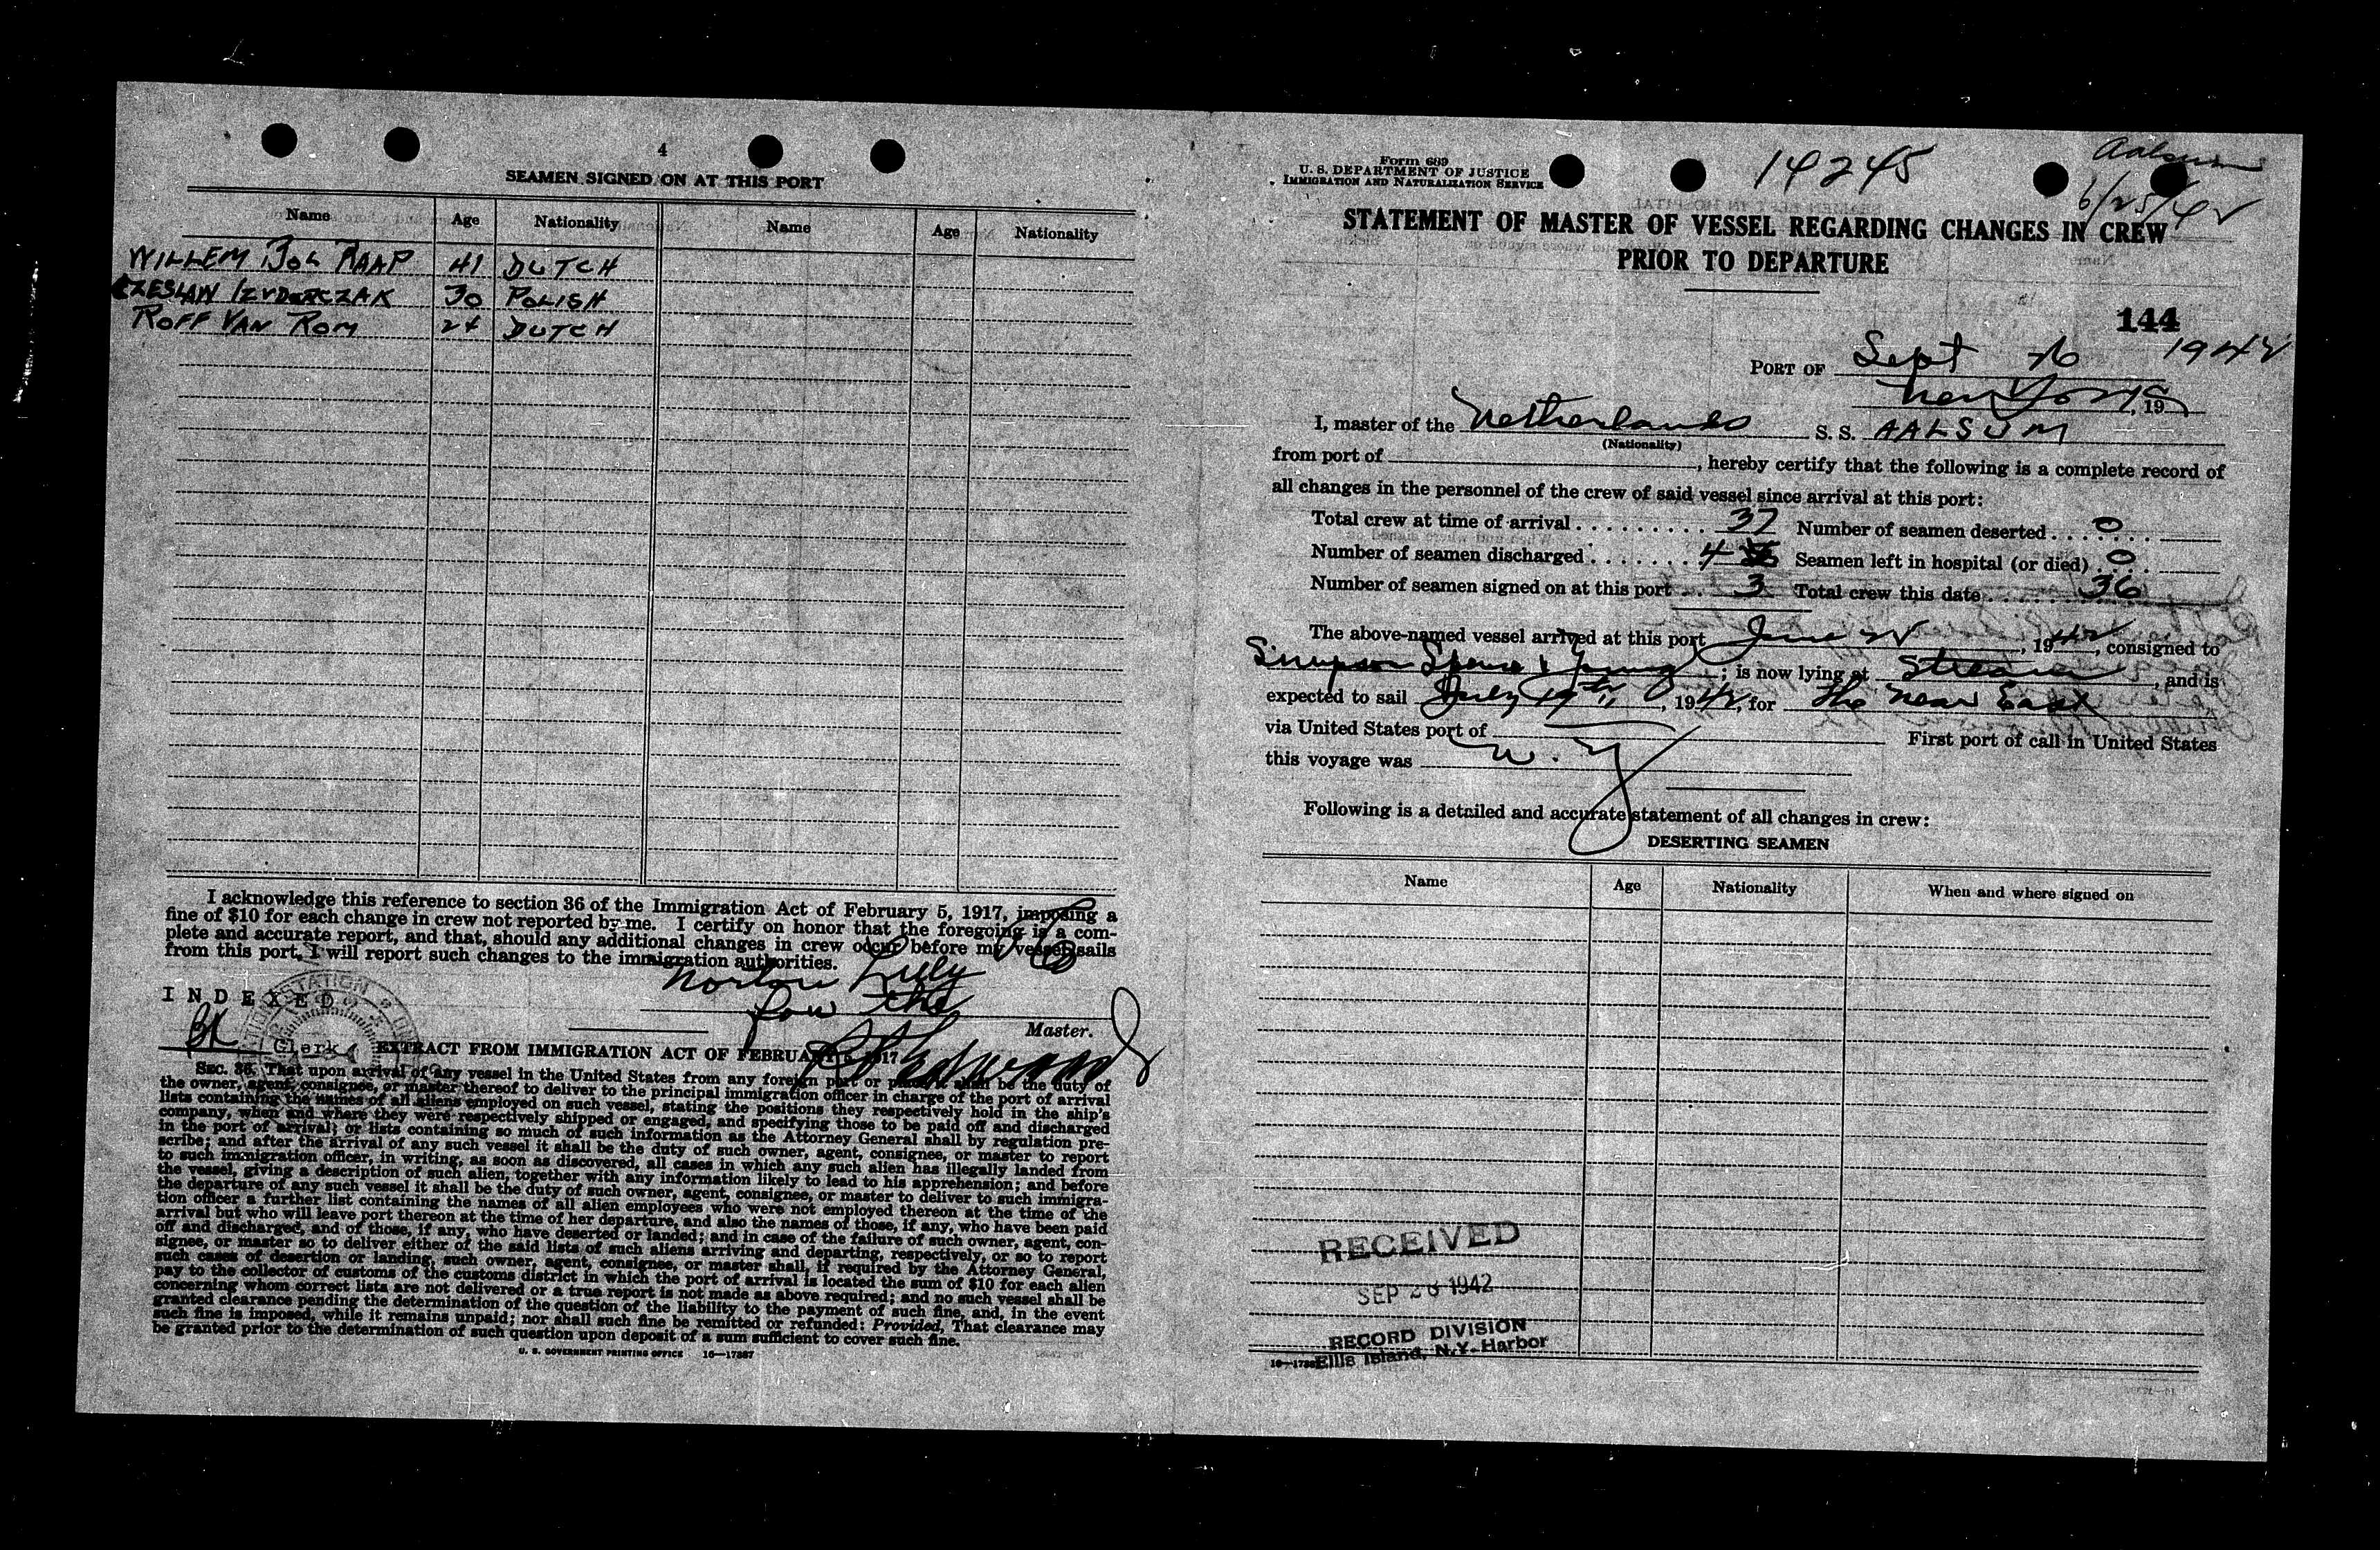 4
SEAMEN SIGNED ON AT THIS PORT
Name Age Nationality Name Age Nationality
WILLEM BOL RAAP 41 DUTCH
30 POLISH
ROFF VAN ROM 24 DUTCH
I acknowledge this reference to section 36 of the Immigration Act of February 5, 1917, imposing a
fine of $10 for each change in crew not reported by me. I certify on honor that the foregoing is a com-
plete and accurate report, and that, should any additional changes in crew occur before my vessel sails
from this port, I will report such changes to the immigration authorities.
Norton Lilly
for the
INDEXED
Master.
Clerk
EXTRACT FROM IMMIGRATION ACT OF FEBRUARY 5, 1917
SEC. 36. That upon arrival of any vessel in the United States from any foreign port or place it shall be the duty of
the owner, agent, consignee, or master thereof to deliver to the principal immigration officer in charge of the port of arrival
lists containing the names of all aliens employed on such vessel, stating the positions they respectively hold in the ship's
company, when and where they were respectively shipped or engaged, and specifying those to be paid off and discharged
in the port of arrival; or lists containing so much of such information as the Attorney General shall by regulation pre-
scribe; and after the arrival of any such vessel it shall be the duty of such owner, agent, consignee, or master to report
to such immigration officer, in writing, as soon as discovered, all cases in which any such alien has illegally landed from
the vessel, giving a description of such alien, together with any information likely to lead to his apprehension; and before
the departure of any such vessel it shall be the duty of such owner, agent, consignee, or master to deliver to such immigra-
tion officer a further list containing the names of all alien employees who were not employed thereon at the time of the
arrival but who will leave port thereon at the time of her departure, and also the names of those, if any, who have been paid
off and discharged, and of those, if any, who have deserted or landed; and in case of the failure of such owner, agent, con-
signee, or master so to deliver either of the said lists of such aliens arriving and departing, respectively, or so to report
such cases of desertion or landing, such owner, agent, consignee, or master shall, if required by the Attorney General,
pay to the collector of customs of the customs district in which the port of arrival is located the sum of $10 for each alien
concerning whom correct lists are not delivered or a true report is not made as above required; and no such vessel shall be
granted clearance pending the determination of the question of the liability to the payment of such fine, and, in the event
such fine is imposed, while it remains unpaid; nor shall such fine be remitted or refunded: Provided, That clearance may
be granted prior to the determination of such question upon deposit of a sum sufficient to cover such fine.
U. S. GOVERNMENT PRINTING OFFICE 16—17387
Form 689
U. S. DEPARTMENT OF JUSTICE
IMMIGRATION AND NATURALIZATION SERVICE
14245
Aalsum
6/25/42
STATEMENT OF MASTER OF VESSEL REGARDING CHANGES IN CREW
PRIOR TO DEPARTURE
144
PORT OF Sept 26 1942
New York, 19
I, master of the Netherlands S. S. AALSUM
(Nationality)
from port of , hereby certify that the following is a complete record of
all changes in the personnel of the crew of said vessel since arrival at this port:
Total crew at time of arrival 37 Number of seamen deserted 0
Number of seamen discharged 4 Seamen left in hospital (or died) 0
Number of seamen signed on at this port 3 Total crew this date 36
The above-named vessel arrived at this port June 25, 1942, consigned to
Simpson Spence & Young; is now lying at Stream, and is
expected to sail July 19th, 1942, for the Near East
via United States port of First port of call in United States
this voyage was N. Y
Following is a detailed and accurate statement of all changes in crew:
DESERTING SEAMEN
Name Age Nationality When and where signed on
RECEIVED
SEP 26 1942
RECORD DIVISION
Ellis Island, N.Y. Harbor